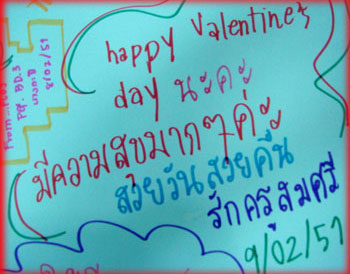 happy Valentine's
day นะคะ
มีความสุขมากๆค่ะ
สวยวันสวยคืน
รักครูสมศรี
9/02/51